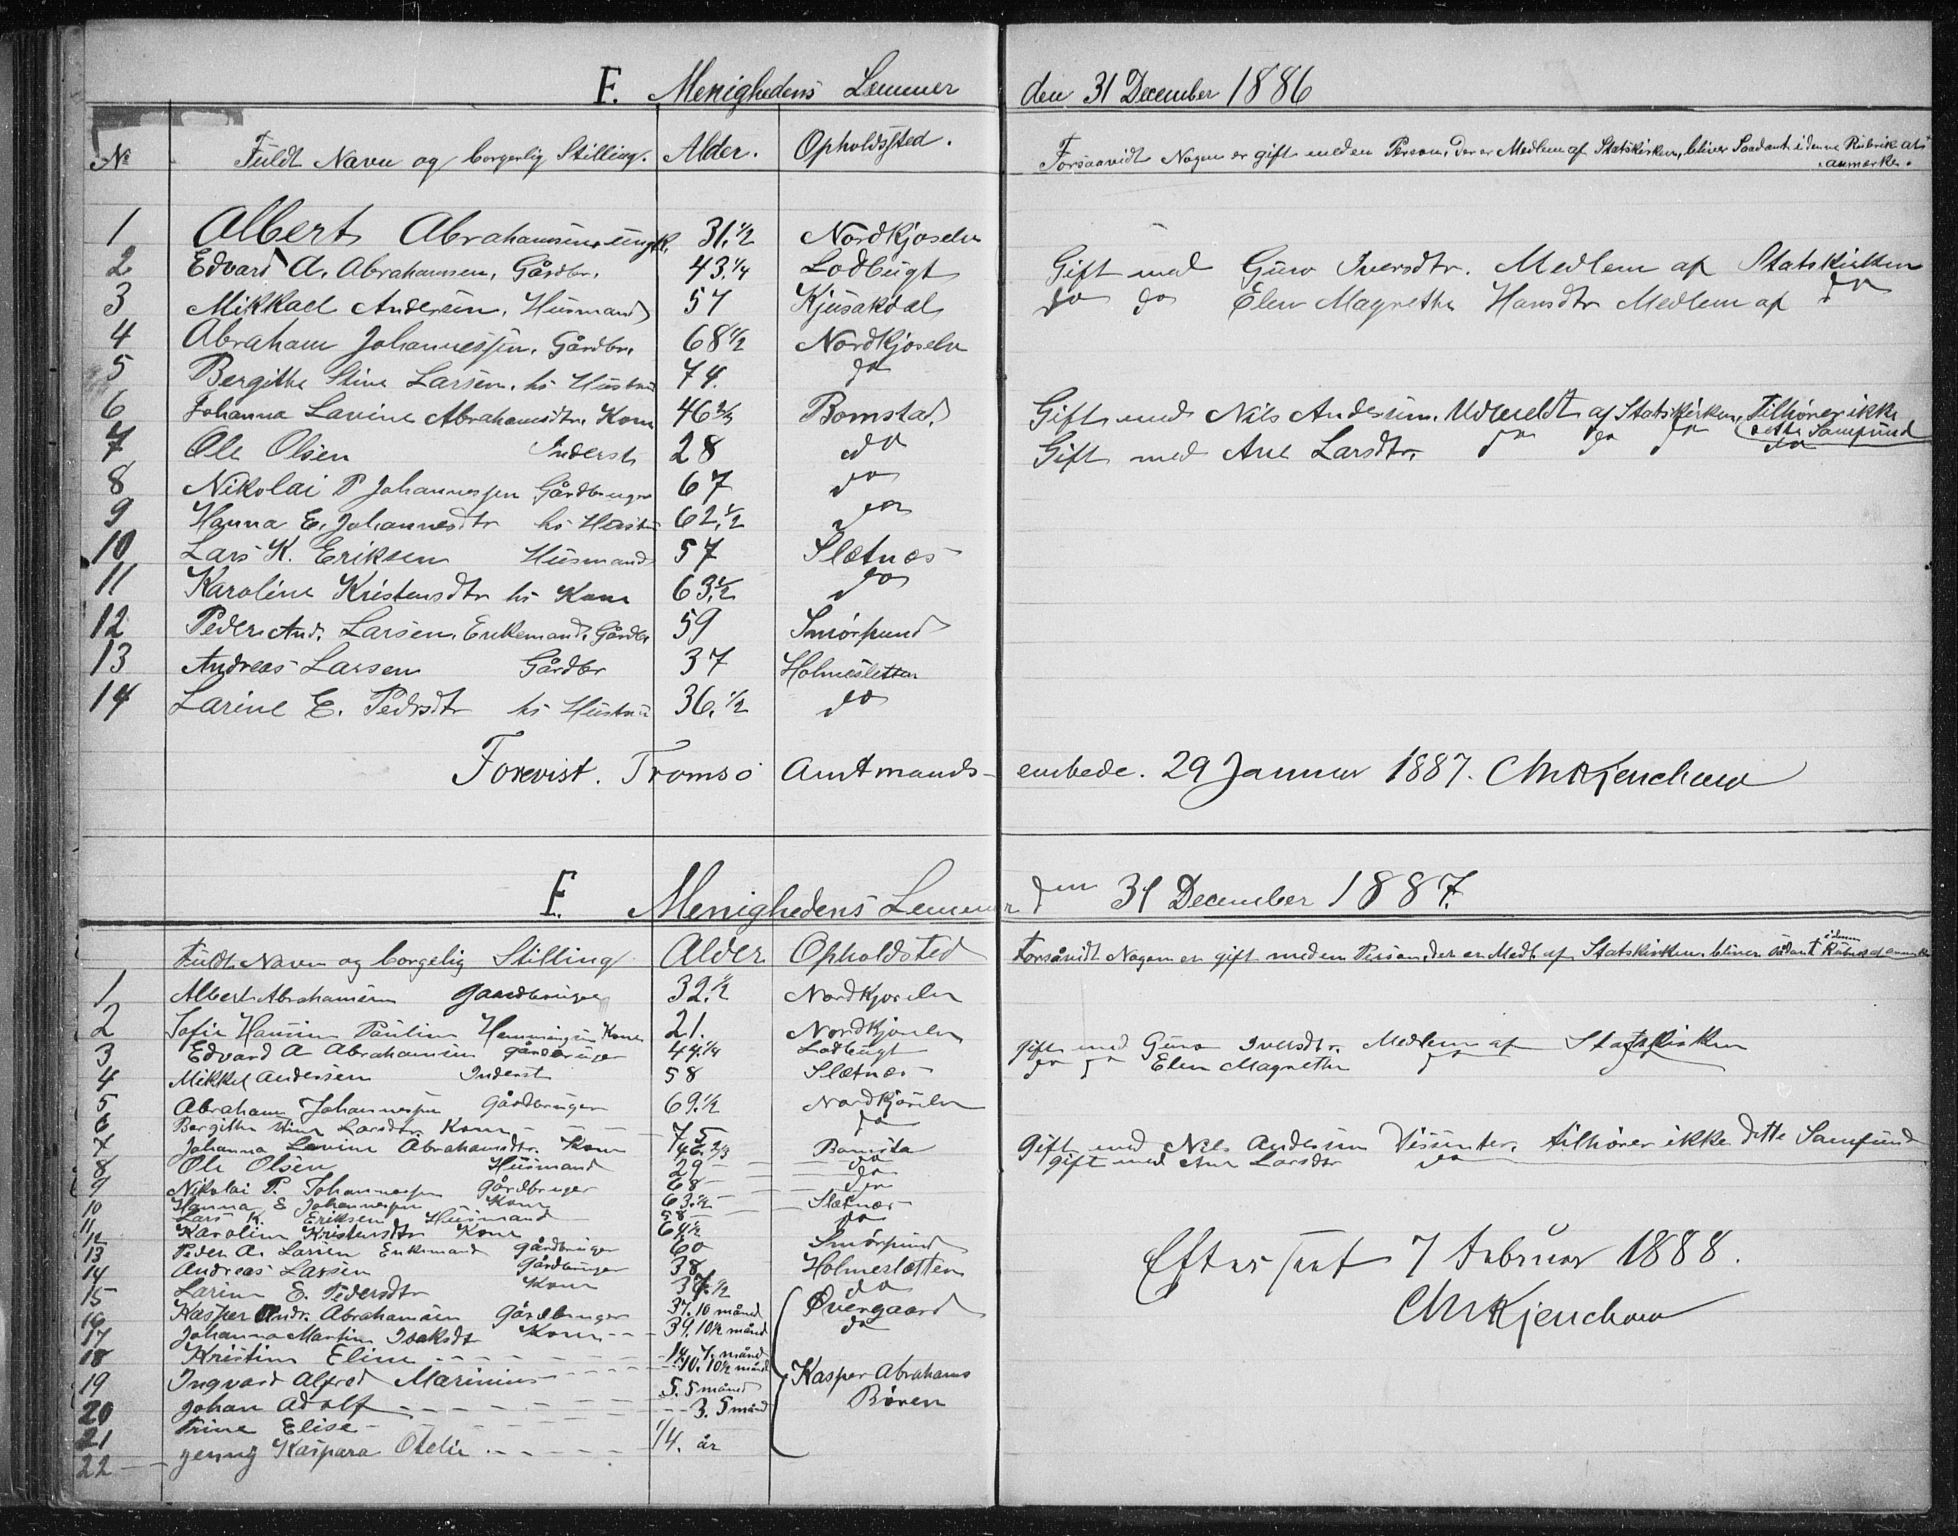 F. Menighedens Lemmer den 31 December 1886
No Fuldt Navn og borgerlig Stilling. Alder. Opholdssted. Forsaavidt Nogen er gift med en Person, der er Medlem af Statskirken, bliver Saadant i denne Rubrik at
anmærke.
1 Albert Abrahamsen, ungk. 31. 1/2 Nordkjoselv
2 Edvard A. Abrahamsen, Gårdbr. 43. 1/4 Lodbugt Gift med Guro Iversdtr. Medlem af Statskirken
3 Mikkael Andersen, Husmand 57 Kjusakdal do do Elen Magrethe Hansdtr Medlem af do
4 Abraham Johannessen, Gårdbr. 68 1/2 Nordkjoselv
5 Bergithe Stine Larsen, hs Hustru 74. do
6 Johanna Lavine Abrahamsdtr. Kone 46 2/3 Bomstad Gift med Nils Andersen. Udmeldt af Statskirken, Tilhører ikke
dette Samfund
7 Ole Olsen Inderst 28 do Gift med Ane Larsdtr. do do do do
8 Nikolai P Johannessen Gårdbruger 67 do
9 Hanna E. Johannesdtr hs Hustru 62. 1/2 do
10 Lars K. Eriksen Husmand 57 Slætnæs
11 Karoline Kristensdtr hs Kone 63. 1/2 do
12 Peder And. Larsen, Enkemand, Gårdbr 59 Smørsund
13 Andreas Larsen Gårdbr 37 Holmesletten
14 Larine E. Pedrsdtr hs Hustru 36. 1/2 do
Forevist. Tromsø Amtmandsembede. 29 Januar 1887.
F. Menighedens Lemmer den 31 December 1887.
Fuldt Navn og borgelig Stilling Alder Opholdsted Forsåvidt Nogen er gift med en Person, der er Medl. af Statskirken, bliver sådant i denne
1 Albert Abrahamsen Gaardbruger 32. 1/2 Nordkjoselv
2 Sofie Hansine Pauline Hemmingsen Kone 21. Nordkjoselv
3 Edvard A Abrahamsen gårdbruger 44. 1/4 Lodbugt gift med Guro Iversdtr. Medlem af Statskirken
4 Mikkel Andersen Inderst 58 Slætnæs do do Elen Magrethe do
5 Abraham Johannessen Gårdbruger 69. 1/2 Nordkjoselv
6 Bergithe Stine Larsdtr Kone 75 do
7 Johanna Lavine Abrahamsdtr. Kone 46. 2/3 Bomsta Gift med Nils Andersen Dissenter. tilhører ikke dette Samfund
8 Ole Olsen Husmand 29 do gift med Ane Larsdtr do
9 Nikolai P. Johannessen gårdbruger 68 do
10 Hanna E Johannessen Kone 63. 1/2 do
11 Lars K. Eriksen Husmand 58 Slætnæs
12 Karoline Kristensdtr Kone 64 1/2 do
13 Peder A. Larsen Enkemand gårdbruger 60 Smørsund
14 Andreas Larsen Gårdbruger 38 Holmesletten
15 Larine E. Pedersdtr Kone 37. 1/2 do
16 Kasper Andr. Abrahamsen Gårdbruger 37. 10 måned Øvergaard
17 Johanna Martine Isaksdt Kone 39. 10 1/2 månd do
18 Kristine Eline 14. 7. månd
19 Ingvard Alfred Marinius 10. 10 1/2 månd Kasper Abrahams
20 Johan Adolf 5. 5 måned Børen
21 Trine Elise 3. 5 månd
22 Jenny Kaspara Otelie 1/4. år
Efterseet 7 Februar 1888.